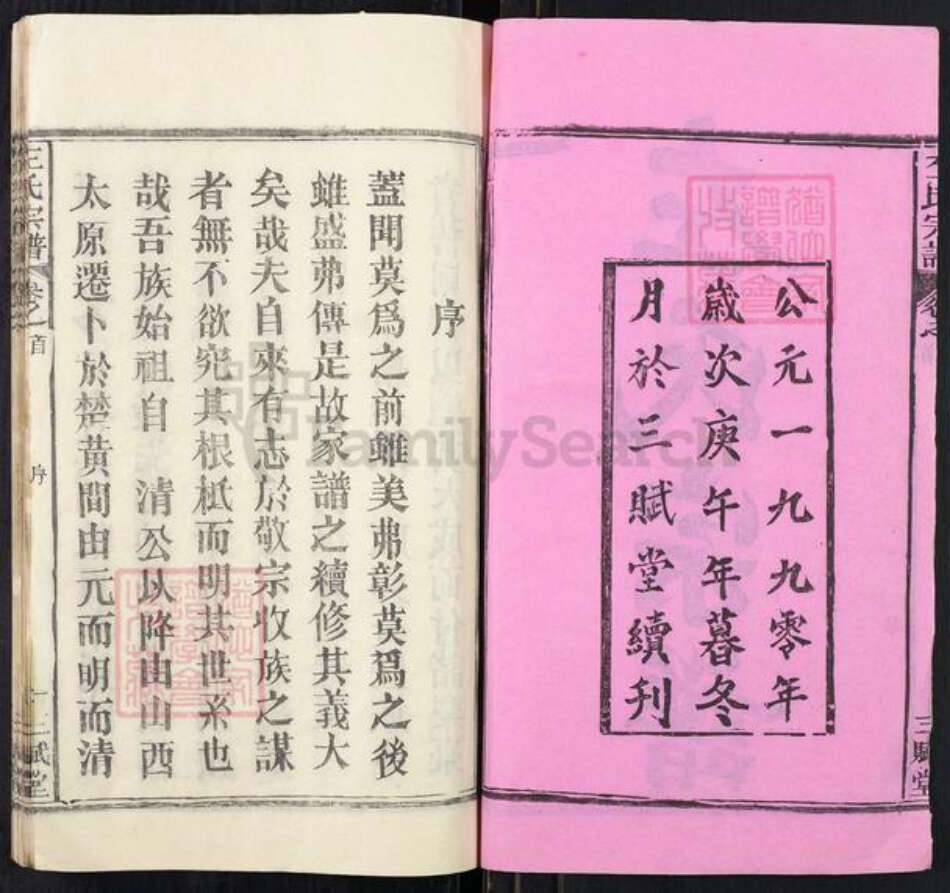 公元一九九零年
歲次庚午年暮冬
月於三賦堂續刊
三賦堂
序
蓋聞莫爲之前雖美弗彰莫爲之後
雖盛弗傳是故家譜之續修其義大
矣哉夫自來有志於敬宗收族之謀
者無不欲究其根柢而明其世系也
哉吾族始祖自 清公以降由山西
太原遷卜於楚黃間由元而明而清
王氏宗譜 卷之首 序 一 三賦堂
FamilySearch